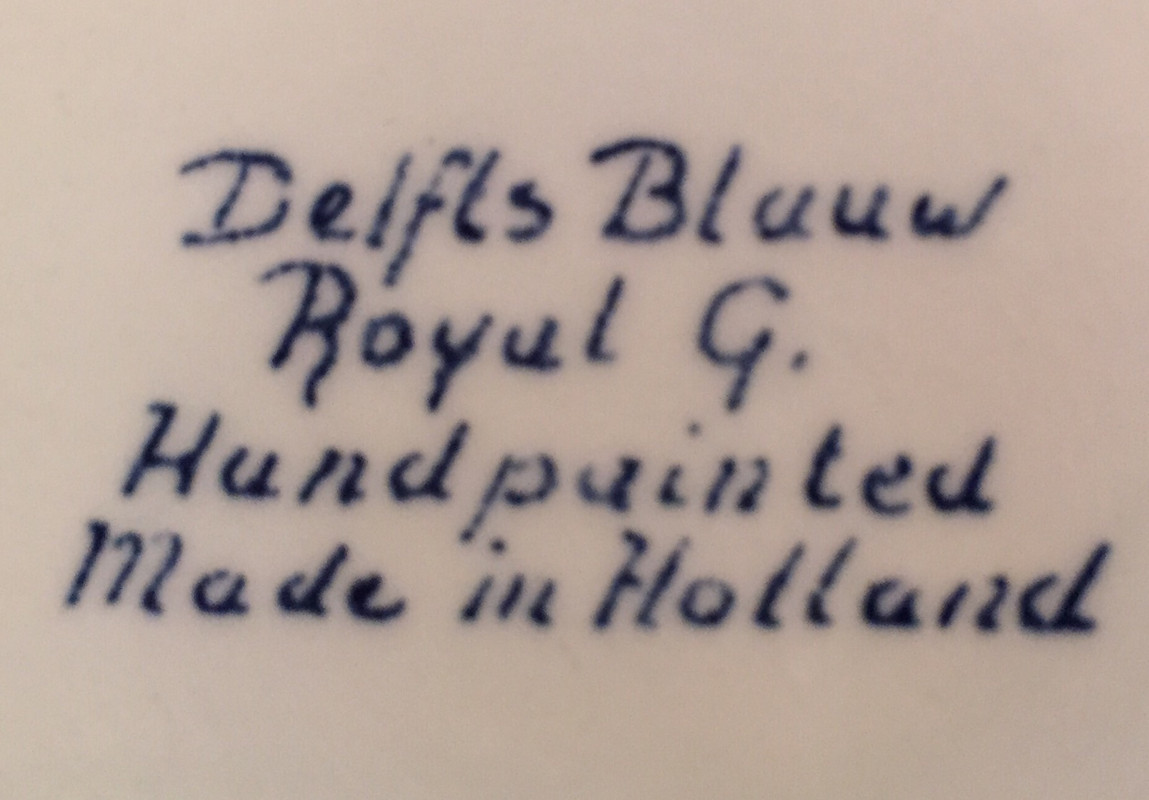 Delfts Blauw
Royal G.
Handpainted
Made in Holland